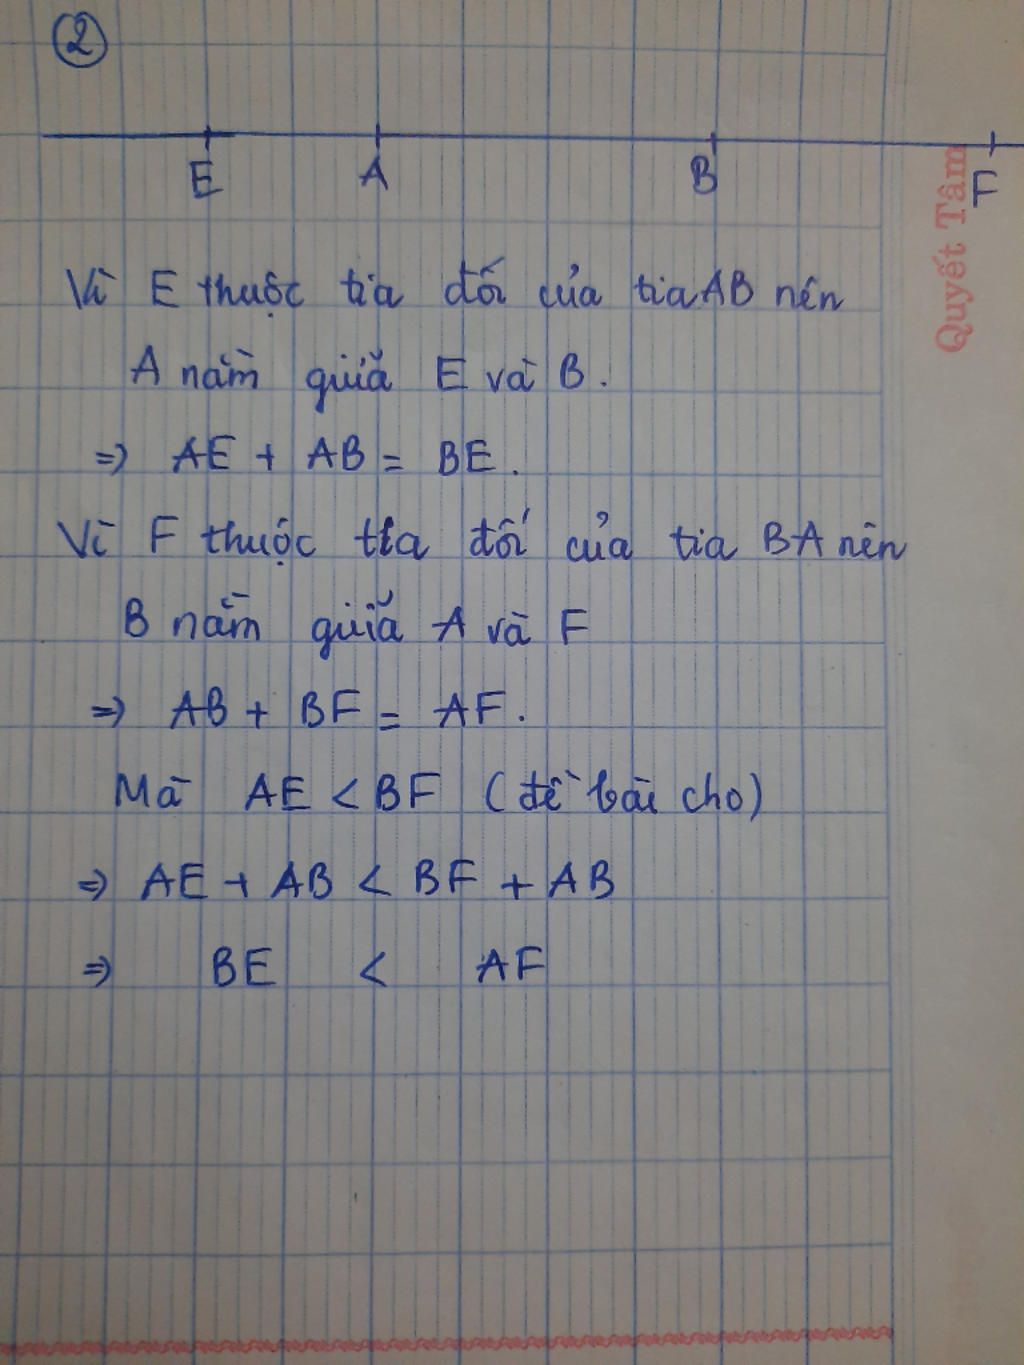 2
E A B F
Quyết Tâm
Vì E thuộc tia đối của tia AB nên
A nằm giữa E và B.
=> AE + AB = BE.
Vì F thuộc tia đối của tia BA nên
B nằm giữa A và F
=> AB + BF = AF.
Mà AE < BF (đề bài cho)
=> AE + AB < BF + AB
=> BE < AF